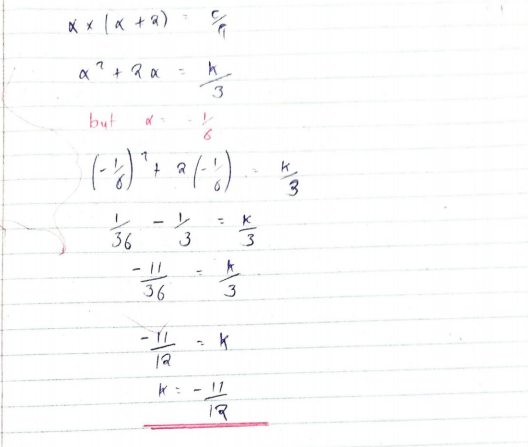 α × (α + 2) = c/a
α² + 2α = k/3
but α = -1/6
(-1/6)² + 2(-1/6) = k/3
1/36 - 1/3 = k/3
-11/36 = k/3
-11/12 = k
k = -11/12